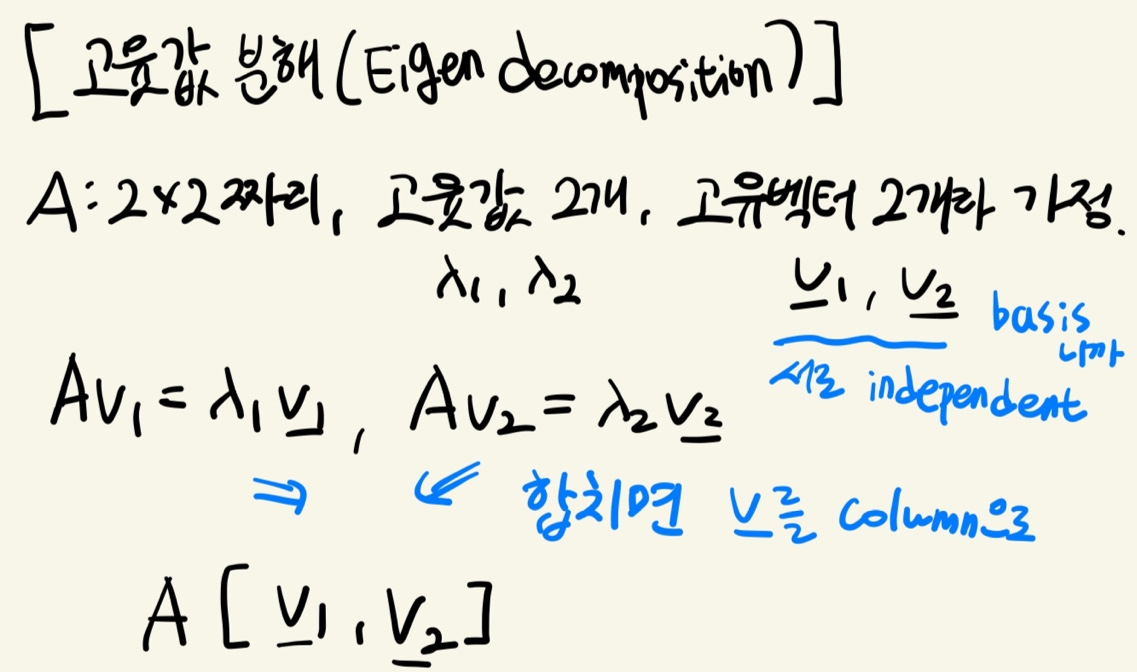 [고윳값 분해(Eigen decomposition)]
A: 2×2짜리, 고윳값 2개, 고유벡터 2개라 가정.
λ1, λ2 v1, v2 basis
니까
서로 independent
Av1 = λ1v1, Av2 = λ2v2
⇒ ⇐ 합치면 v를 column으로
A [v1, v2]